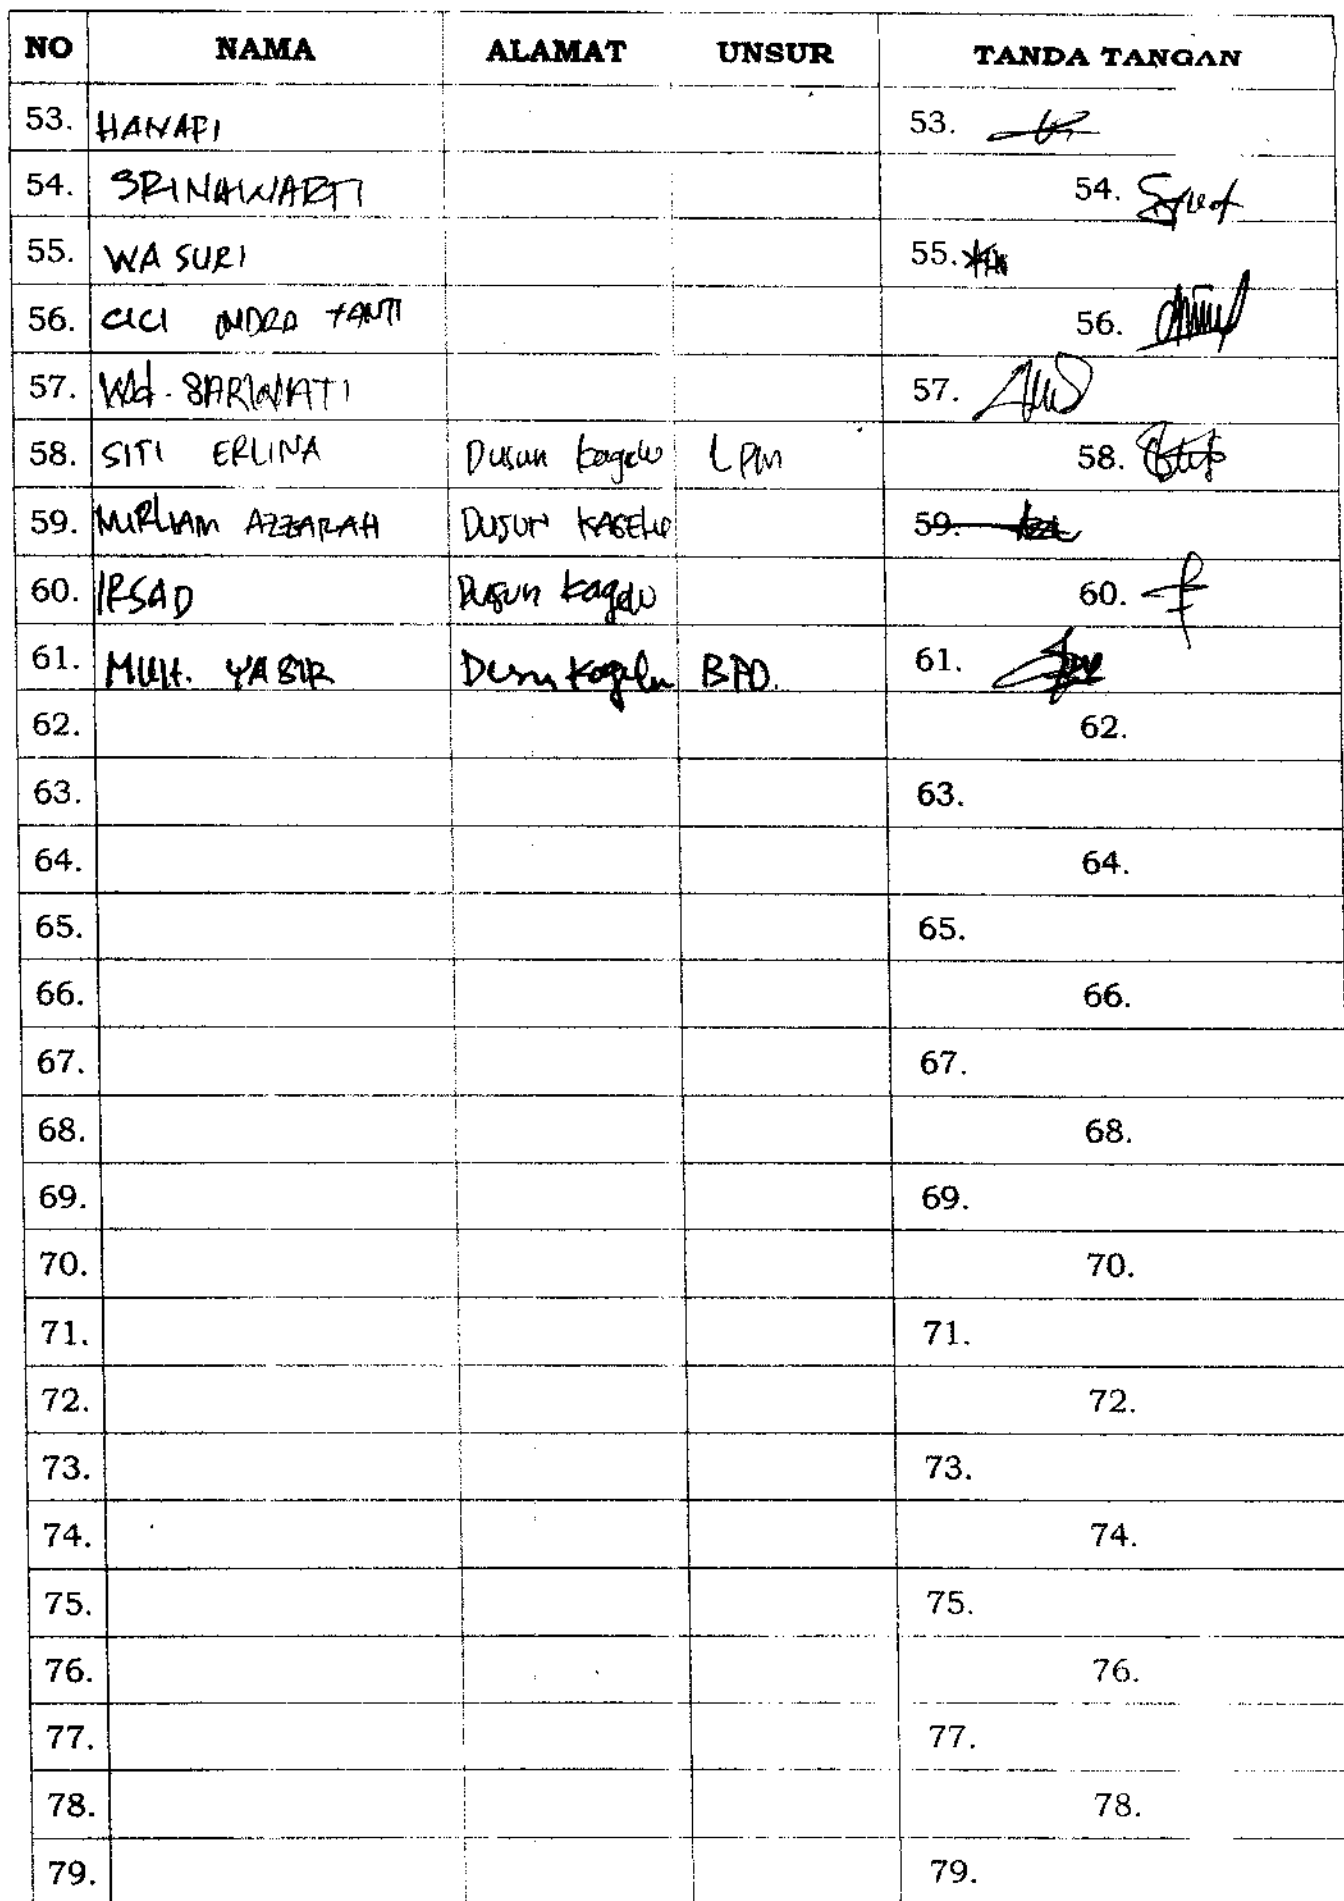 NO NAMA ALAMAT UNSUR TANDA TANGAN
53. HANAFI 53.
54. SRINAWARTI 54.
55. WA SURI 55.
56. CICI INDRA YANTI 56.
57. Wd. SARIWATI 57.
58. SITI ERLINA Dusun Kagelu LPM 58.
59. MIRLIAM AZZARAH DUSUN KAGELU 59.
60. IRSAD Dusun Kagelu 60.
61. MUH. YASIR Dusun Kagelu BPD. 61.
62. 62.
63. 63.
64. 64.
65. 65.
66. 66.
67. 67.
68. 68.
69. 69.
70. 70.
71. 71.
72. 72.
73. 73.
74. 74.
75. 75.
76. 76.
77. 77.
78. 78.
79. 79.